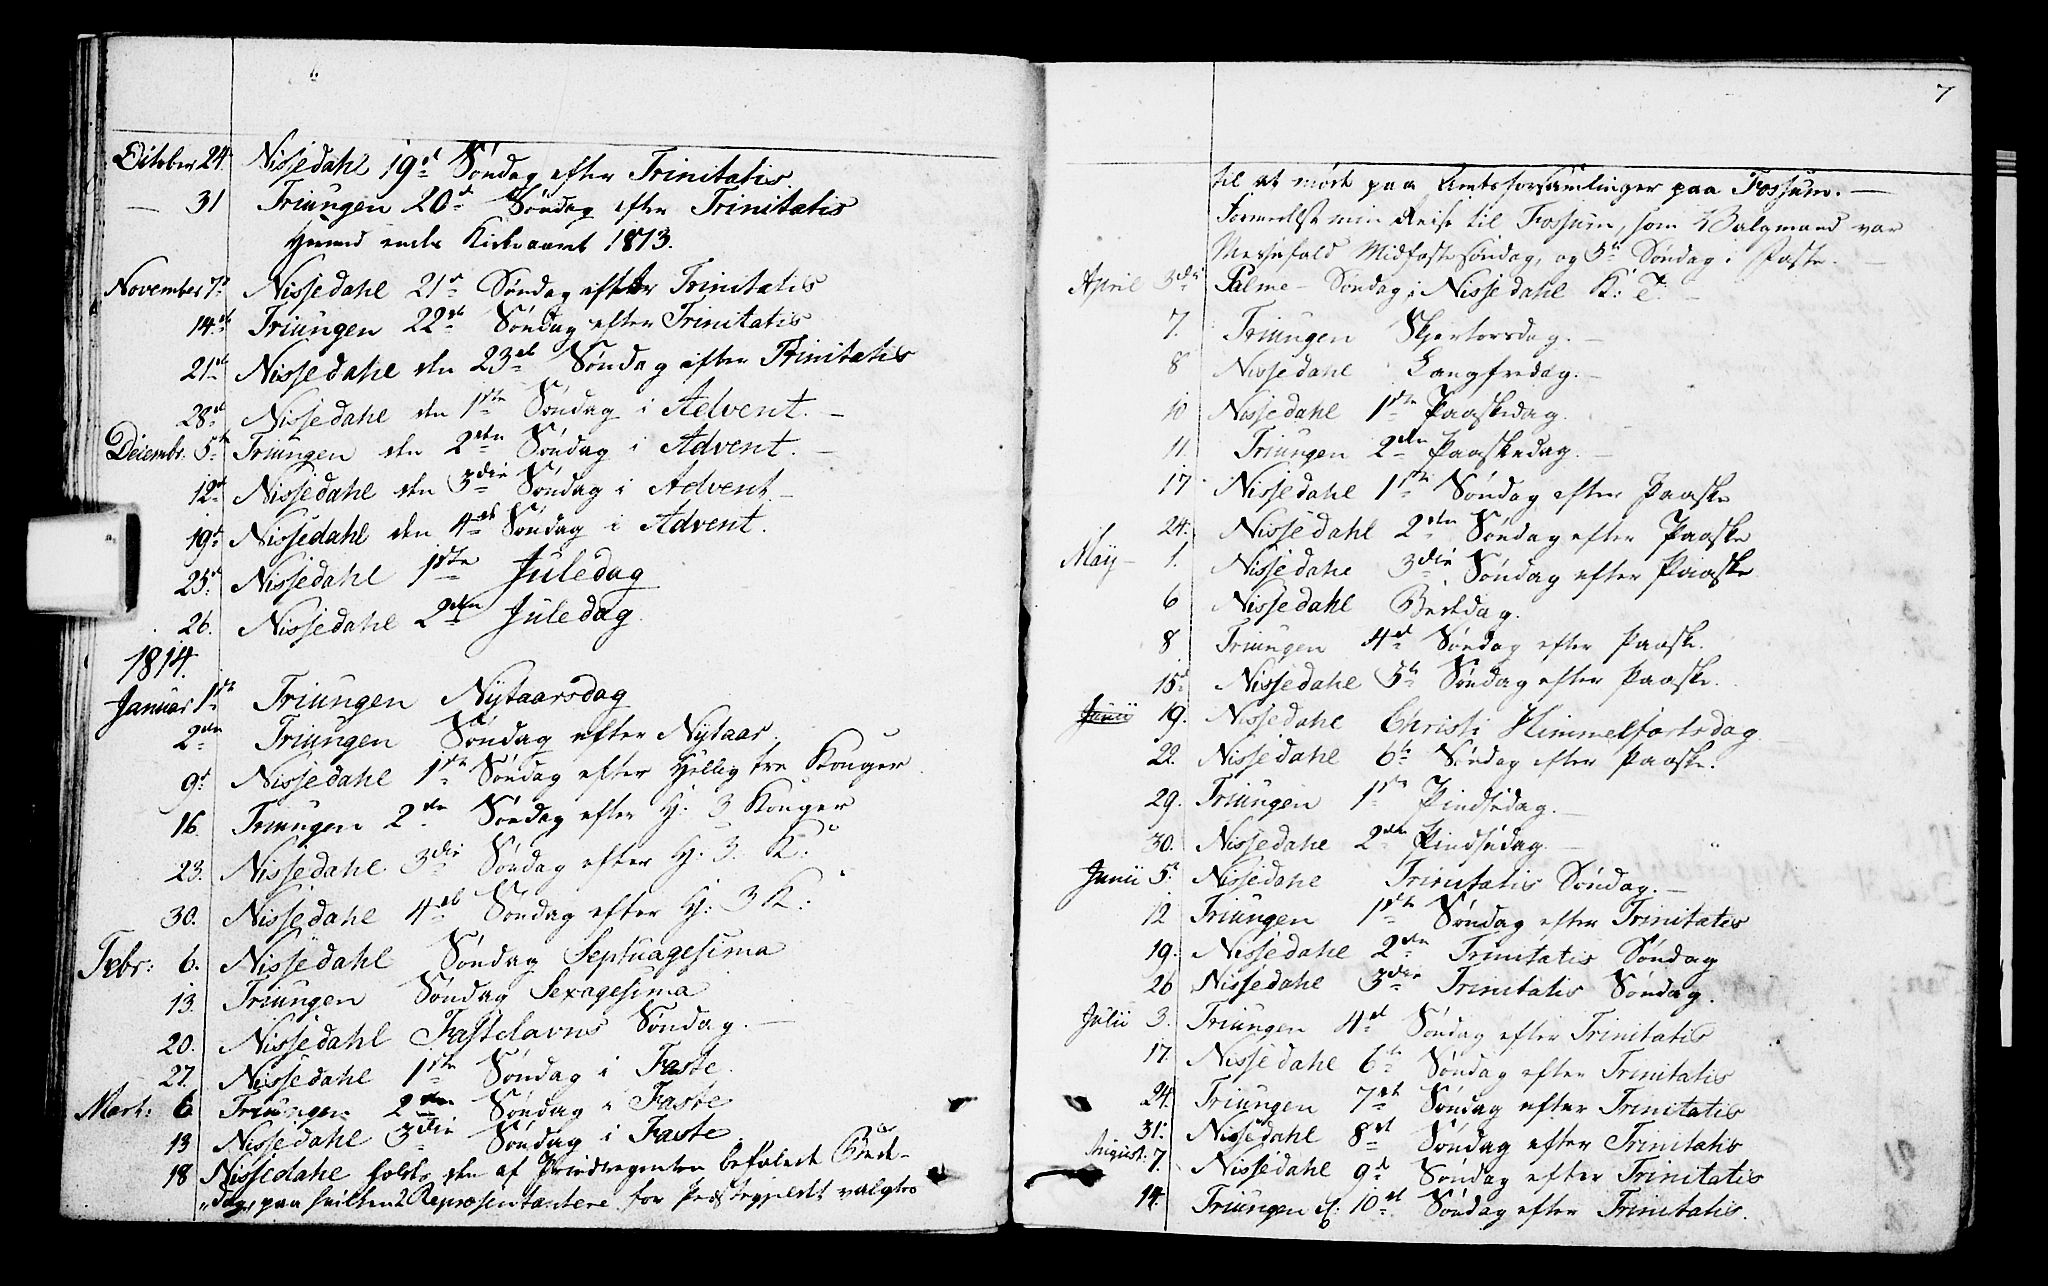 October 24. Nissedahl 19de Søndag efter Trinitatis
— 31 Triungen 20de Søndag efter Trinitatis
Hermed endte Kirkeaaret 1813.
November 7de Nissedahl 21de Søndag efter Trinitatis
14de Triungen 22de Søndag efter Trinitatis
21de Nissedahl den 23de Søndag efter Trinitatis
28de Nissedahl den 1ste Søndag i Advent. —
Decembr. 5te Triungen den 2den Søndag i Advent. —
12te Nissedahl den 3die Søndag i Advent. —
19de Nissedahl den 4de Søndag i Advent.
25de Nissedahl 1ste Juledag
26. Nissedahl 2den Juledag.
1814.
Januar 1ste Triungen Nytaarsdag
2den Triungen Søndag efter Nytaar.
9de Nissedahl 1ste Søndag efter Hellig tre Konger.
16. Triungen 2den Søndag efter H: 3 Konger
23. Nissedahl 3die Søndag efter H: 3 K:
30. Nissedahl 4de Søndag efter H: 3 K:
Febr: 6. Nissedahl Søndag Septuagesima
13. Triungen Søndag Sexagesima
20. Nissedahl Fastelavns Søndag. —
27. Nissedahl 1ste Søndag i Faste.
Mart: 6 Triungen 2den Søndag i Faste
13 Nissedahl 3die Søndag i Faste
18 Nissedahl holdt den af Prindsregenten befalede Bed-
dag, paa hvilken 2 Repræsentantere for Præstegjeldet valgtes
7
til at møde paa Amtsforsamlinger paa Fossum. —
Formedelst min Reise til Fossum, som Valgmand var
Messefald Midfaste Søndag, og 5te Søndag i Faste. —
April 3die Palme-Søndag i Nissedahl K: T. —
7. Triungen Skjertorsdag. —
8 Nissedahl Langfredag. —
10 Nissedahl 1ste Paaskedag.
11. Triungen 2den Paaskedag. —
17 Nissedahl 1ste Søndag efter Paaske
24. Nissedahl 2den Søndag efter Paaske
Maij — 1. Nissedahl 3die Søndag efter Paaske
6 Nissedahl Bededag.
8 Triungen 4de Søndag efter Paaske.
15de Nissedahl 5te Søndag efter Paaske.
Junii 19. Nissedahl Christi Himmelfartsdag
22. Nissedahl 6te Søndag efter Paaske.
29. Triungen 1ste Pindsedag. —
30. Nissedahl 2den Pindsedag. —
Junii 5te Nissedahl Trinitatis Søndag. —
12 Triungen 1ste Søndag efter Trinitatis
19. Nissedahl 2den Trinitatis Søndag
26 Nissedahl 3die Trinitatis Søndag.
Julii 3. Triungen 4de Søndag efter Trinitatis
17. Nissedahl 6te Søndag efter Trinitatis
24. Triungen 7de Søndag efter Trinitatis
31. Nissedahl 8de Søndag efter Trinitatis
August: 7. Nissedahl 9de Søndag efter Trinitatis
14. Triungen 10de Søndag efter Trinitatis.